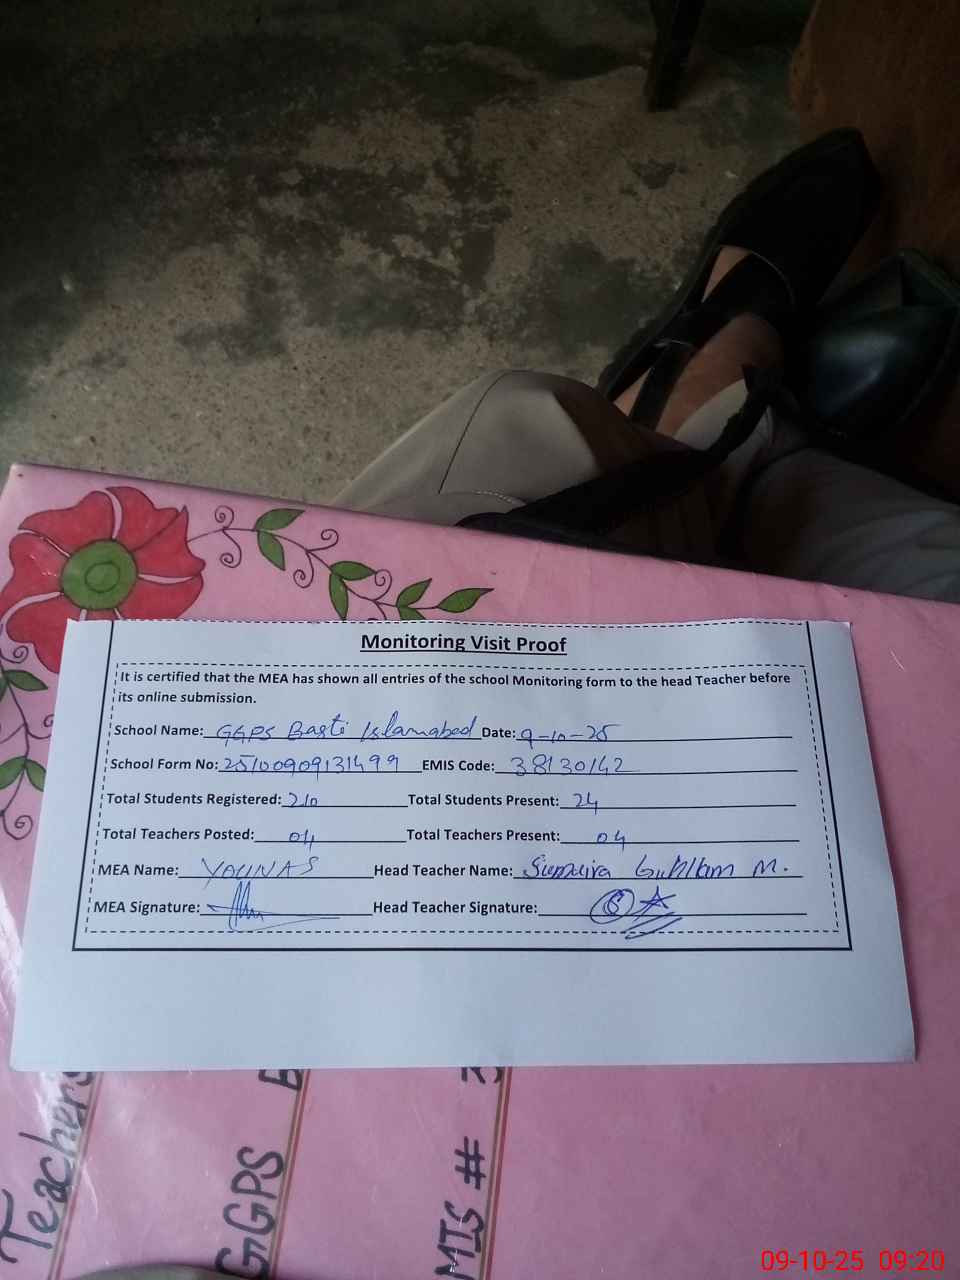 Monitoring Visit Proof
It is certified that the MEA has shown all entries of the school Monitoring form to the head Teacher before
its online submission.
School Name: GGPS Basti Islamabad Date: 9-10-25
School Form No: 25100909131499 EMIS Code: 38130142
Total Students Registered: 210 Total Students Present: 24
Total Teachers Posted: 04 Total Teachers Present: 04
MEA Name: YOUNAS Head Teacher Name: Sumaira Ghulam M.
MEA Signature: Head Teacher Signature:
Teachers
GGPS
MIS #
09-10-25 09:20